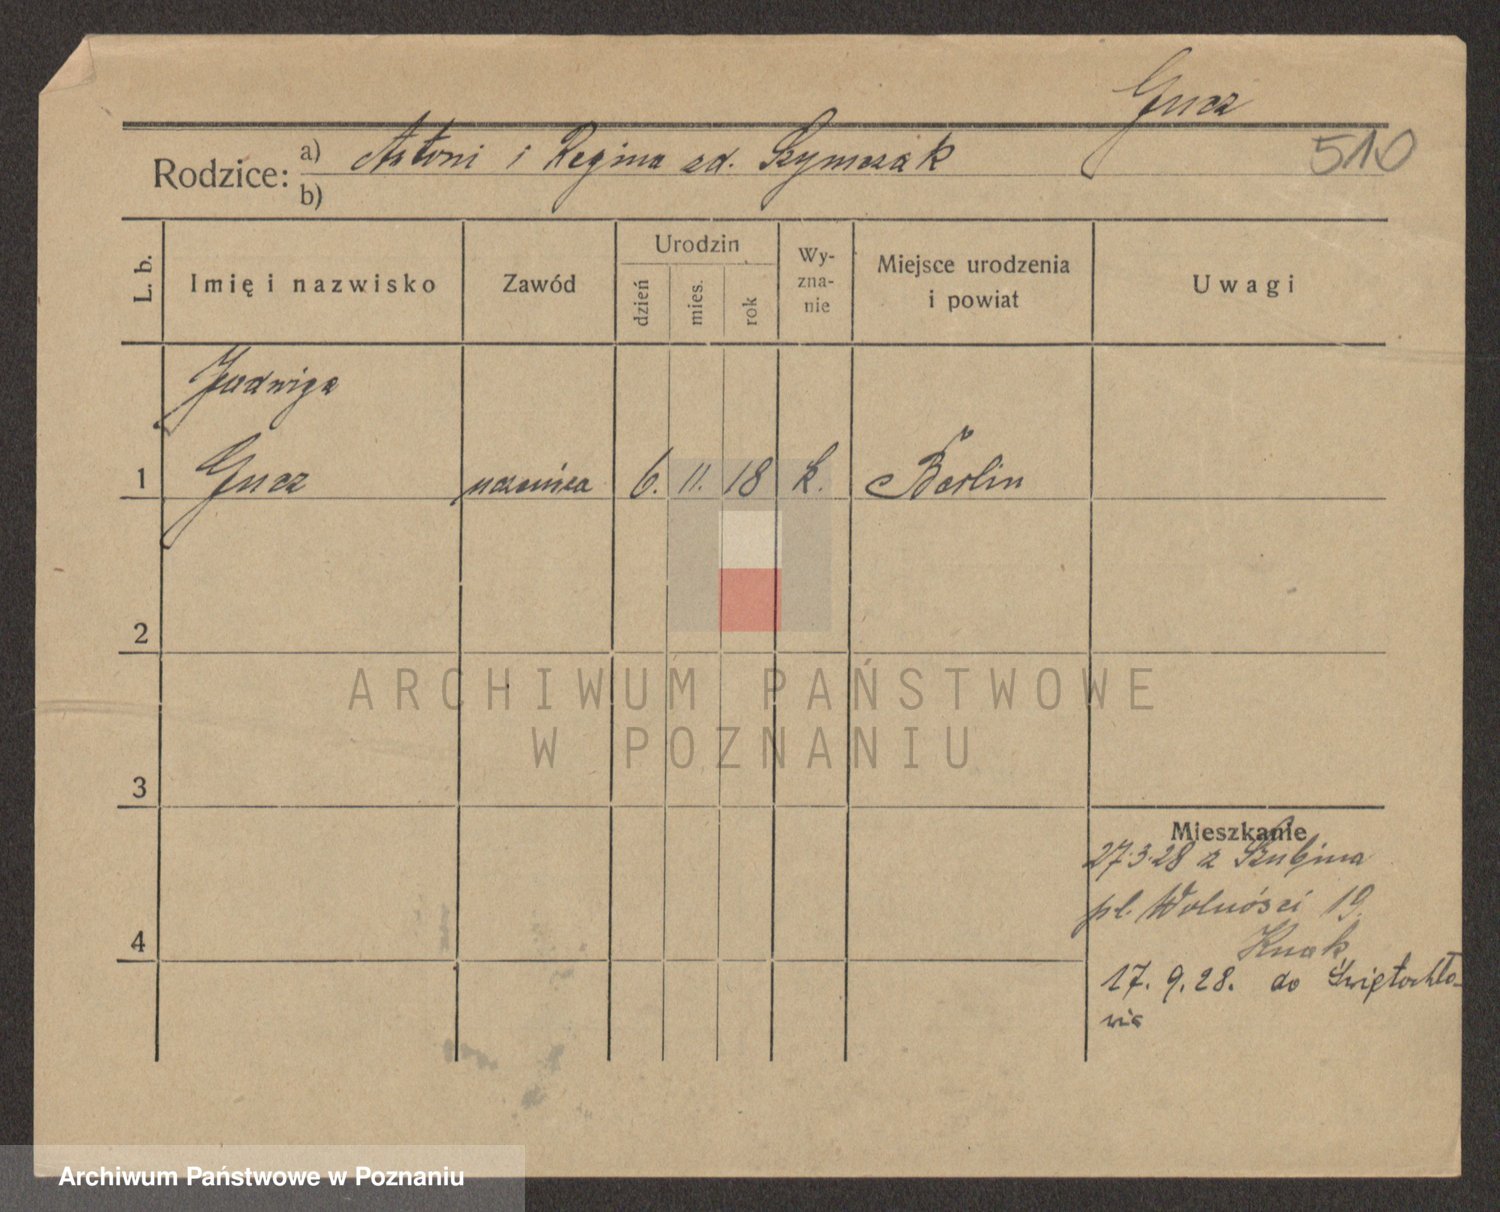 Gucz
510
Rodzice: a) Antoni i Regina zd. Szymczak
b)
L. b. Imię i nazwisko Zawód Urodzin dzień mies. rok Wy-zna-nie Miejsce urodzenia i powiat Uwagi
Jadwiga
1 Gucz uczenica 6. 11. 18 k. Berlin
2
ARCHIWUM PAŃSTWOWE
W POZNANIU
3
Mieszkanie
27.3.28 z Szubina
pl. Wolności 19.
Knak
4
17. 9. 28. do Świętochło-
wic
Archiwum Państwowe w Poznaniu